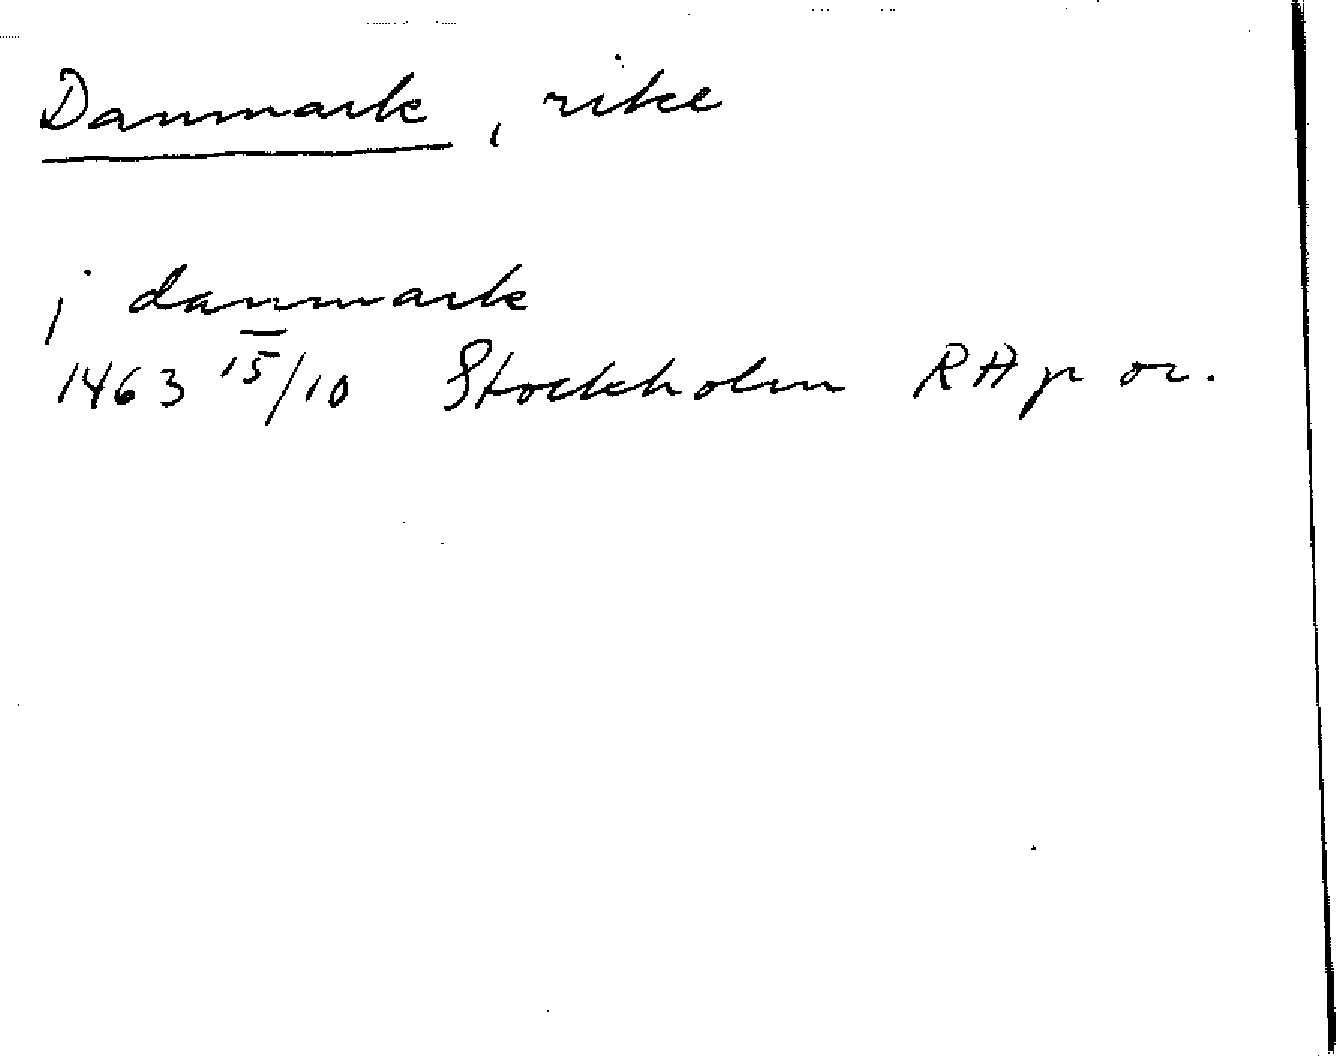 Danmark, rike
j danmark
1463 15/10 Stockholm RAp or.